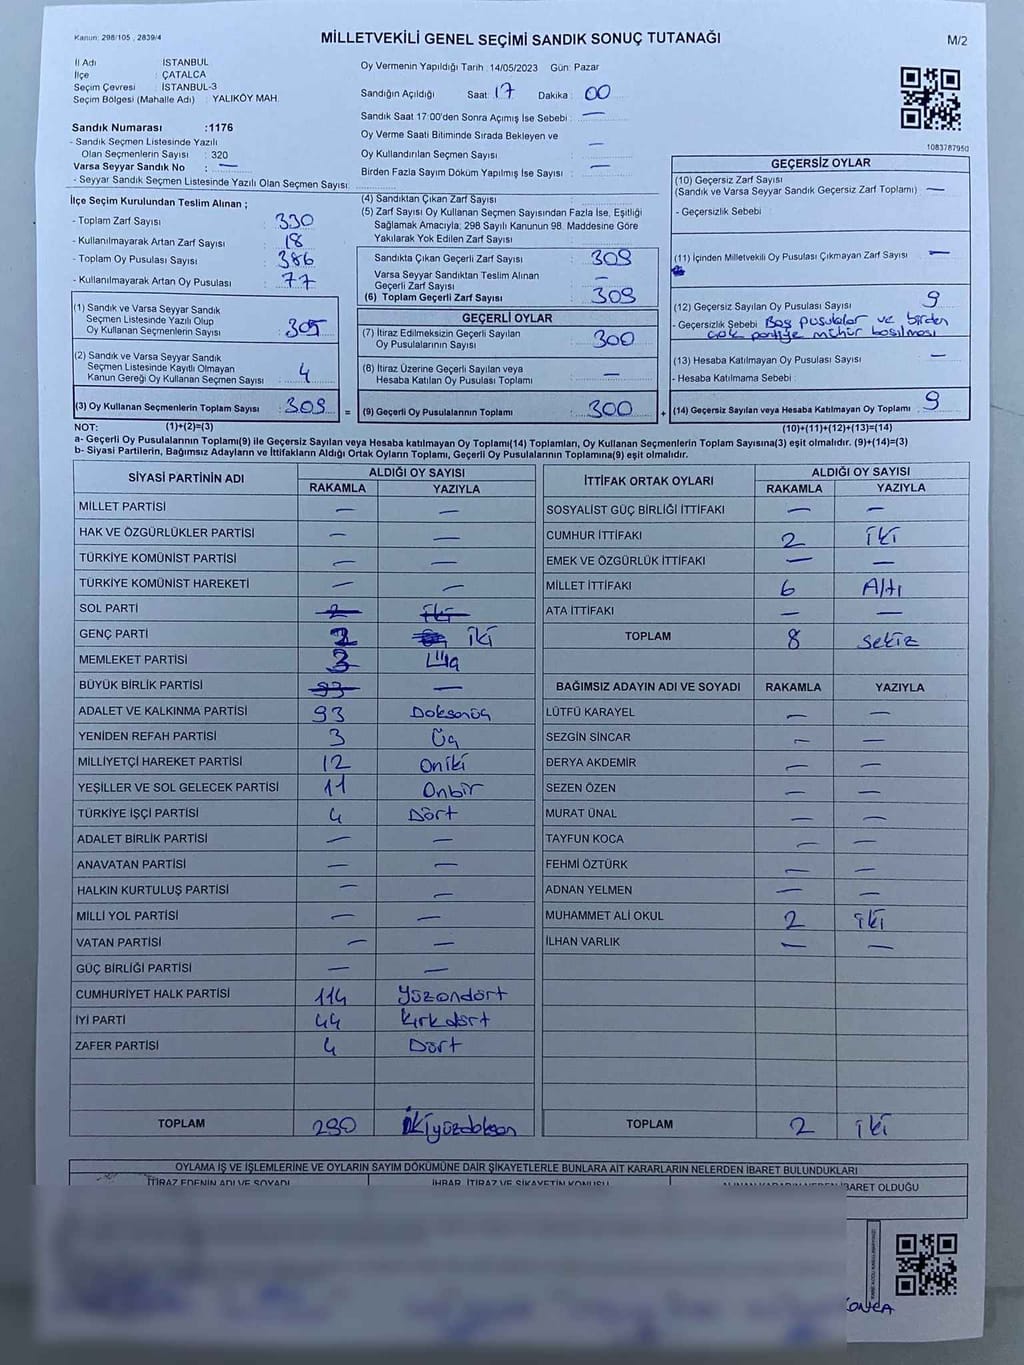 Kanun: 298/105 , 2839/4
MİLLETVEKİLİ GENEL SEÇİMİ SANDIK SONUÇ TUTANAĞI
M/2
İl Adı : İSTANBUL
İlçe : ÇATALCA
Seçim Çevresi : İSTANBUL-3
Seçim Bölgesi (Mahalle Adı) : YALIKÖY MAH.
Sandık Numarası :1176
- Sandık Seçmen Listesinde Yazılı
Olan Seçmenlerin Sayısı : 320
Varsa Seyyar Sandık No : —
- Seyyar Sandık Seçmen Listesinde Yazılı Olan Seçmen Sayısı:
Oy Vermenin Yapıldığı Tarih :14/05/2023 Gün: Pazar
Sandığın Açıldığı Saat: 17 Dakika : 00
Sandık Saat 17:00'den Sonra Açımış İse Sebebi : —
Oy Verme Saati Bitiminde Sırada Bekleyen ve
Oy Kullandırılan Seçmen Sayısı : —
Birden Fazla Sayım Döküm Yapılmış İse Sayısı : —
1083787950
İlçe Seçim Kurulundan Teslim Alınan ;
- Toplam Zarf Sayısı : 330
- Kullanılmayarak Artan Zarf Sayısı : 18
- Toplam Oy Pusulası Sayısı : 386
- Kullanılmayarak Artan Oy Pusulası : 77
(1) Sandık ve Varsa Seyyar Sandık
Seçmen Listesinde Yazılı Olup
Oy Kullanan Seçmenlerin Sayısı : 305
(2) Sandık ve Varsa Seyyar Sandık
Seçmen Listesinde Kayıtlı Olmayan
Kanun Gereği Oy Kullanan Seçmen Sayısı : 4
(3) Oy Kullanan Seçmenlerin Toplam Sayısı : 309
(4) Sandıktan Çıkan Zarf Sayısı :
(5) Zarf Sayısı Oy Kullanan Seçmen Sayısından Fazla İse, Eşitliği
Sağlamak Amacıyla; 298 Sayılı Kanunun 98. Maddesine Göre
Yakılarak Yok Edilen Zarf Sayısı :
Sandıkta Çıkan Geçerli Zarf Sayısı : 309
Varsa Seyyar Sandıktan Teslim Alınan
Geçerli Zarf Sayısı : —
(6) Toplam Geçerli Zarf Sayısı : 309
GEÇERLİ OYLAR
(7) İtiraz Edilmeksizin Geçerli Sayılan
Oy Pusulalarının Sayısı : 300
(8) İtiraz Üzerine Geçerli Sayılan veya
Hesaba Katılan Oy Pusulası Toplamı : —
= (9) Geçerli Oy Pusulalarının Toplamı : 300
GEÇERSİZ OYLAR
(10) Geçersiz Zarf Sayısı
(Sandık ve Varsa Seyyar Sandık Geçersiz Zarf Toplamı) : —
- Geçersizlik Sebebi :
(11) İçinden Milletvekili Oy Pusulası Çıkmayan Zarf Sayısı : —
(12) Geçersiz Sayılan Oy Pusulası Sayısı : 9
- Geçersizlik Sebebi : Boş pusulalar ve birden
çok partiye mühür basılması
(13) Hesaba Katılmayan Oy Pusulası Sayısı : —
- Hesaba Katılmama Sebebi :
+ (14) Geçersiz Sayılan veya Hesaba Katılmayan Oy Toplamı : 9
NOT: (1)+(2)=(3) (10)+(11)+(12)+(13)=(14)
a- Geçerli Oy Pusulalarının Toplamı(9) ile Geçersiz Sayılan veya Hesaba katılmayan Oy Toplamı(14) Toplamları, Oy Kullanan Seçmenlerin Toplam Sayısına(3) eşit olmalıdır. (9)+(14)=(3)
b- Siyasi Partilerin, Bağımsız Adayların ve İttifakların Aldığı Ortak Oyların Toplamı, Geçerli Oy Pusulalarının Toplamına(9) eşit olmalıdır.
SİYASİ PARTİNİN ADI ALDIĞI OY SAYISI
RAKAMLA YAZIYLA
MİLLET PARTİSİ — —
HAK VE ÖZGÜRLÜKLER PARTİSİ — —
TÜRKİYE KOMÜNİST PARTİSİ — —
TÜRKİYE KOMÜNİST HAREKETİ — —
SOL PARTİ 2 İki
GENÇ PARTİ 2 iki
MEMLEKET PARTİSİ 3
BÜYÜK BİRLİK PARTİSİ 93 —
ADALET VE KALKINMA PARTİSİ 93 Doksanüç
YENİDEN REFAH PARTİSİ 3 Üç
MİLLİYETÇİ HAREKET PARTİSİ 12 Oniki
YEŞİLLER VE SOL GELECEK PARTİSİ 11 Onbir
TÜRKİYE İŞÇİ PARTİSİ 4 Dört
ADALET BİRLİK PARTİSİ — —
ANAVATAN PARTİSİ — —
HALKIN KURTULUŞ PARTİSİ — —
MİLLİ YOL PARTİSİ — —
VATAN PARTİSİ — —
GÜÇ BİRLİĞİ PARTİSİ — —
CUMHURİYET HALK PARTİSİ 114 Yüzondört
İYİ PARTİ 44 Kırkdört
ZAFER PARTİSİ 4 Dört
TOPLAM 290 İkiyüzdoksan
İTTİFAK ORTAK OYLARI ALDIĞI OY SAYISI
RAKAMLA YAZIYLA
SOSYALİST GÜÇ BİRLİĞİ İTTİFAKI — —
CUMHUR İTTİFAKI 2 İki
EMEK VE ÖZGÜRLÜK İTTİFAKI — —
MİLLET İTTİFAKI 6 Altı
ATA İTTİFAKI — —
TOPLAM 8 sekiz
BAĞIMSIZ ADAYIN ADI VE SOYADI RAKAMLA YAZIYLA
LÜTFÜ KARAYEL — —
SEZGİN SİNCAR — —
DERYA AKDEMİR — —
SEZEN ÖZEN — —
MURAT ÜNAL — —
TAYFUN KOCA — —
FEHMİ ÖZTÜRK — —
ADNAN YELMEN — —
MUHAMMET ALİ OKUL 2 iki
İLHAN VARLIK — —
TOPLAM 2 iki
OYLAMA İŞ VE İŞLEMLERİNE VE OYLARIN SAYIM DÖKÜMÜNE DAİR ŞİKAYETLERLE BUNLARA AİT KARARLARIN NELERDEN İBARET BULUNDUKLARI
İTİRAZ EDENİN ADI VE SOYADI İHBAR, İTİRAZ VE ŞİKAYETİN KONUSU ALINAN KARARIN NEDEN İBARET OLDUĞU